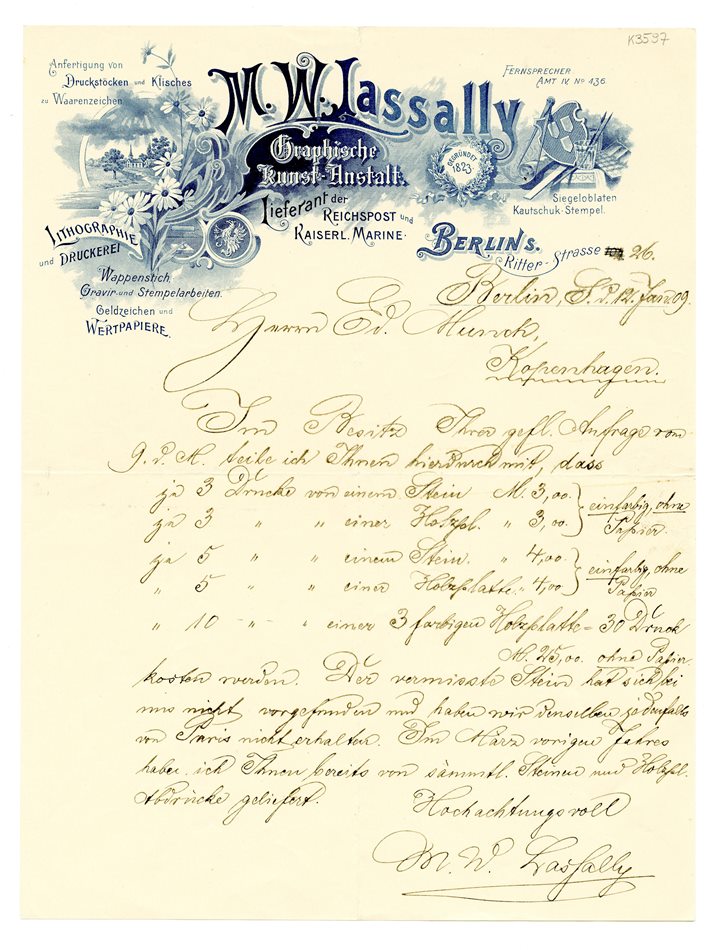 K3597
Anfertigung von
Druckstöcken und Klisches
zu Waarenzeichen.
M. W. Lassally
Graphische
Kunst-Anstalt.
Lieferant der
Reichspost und
Kaiserl. Marine.
Fernsprecher
Amt IV. No 436.
Gegründet
1823.
Siegeloblaten
Kautschuk-Stempel.
Lithographie
und Druckerei
Wappenstich,
Gravir- und Stempelarbeiten.
Geldzeichen und
Wertpapiere.
Berlin S.
Ritter-Strasse 26.
Berlin, S. d. 12. Jan. 09.
Herrn Ed. Munch,
Kopenhagen.
Im Besitz Ihrer gefl. Anfrage vom
9. d. M. teile ich Ihnen hierdurch mit, dass
je 3 Drucke von einem Stein M. 3,00. } einfarbig, ohne
je 3 " " einer Holzpl. " 3,00. } Papier.
je 5 " " einem Stein. " 4,00. } einfarbig, ohne
" 5 " " einer Holzplatte. " 4,00 } Papier
" 10 " " einer 3 farbigen Holzplatte = 30 Druck
M. 25,00. ohne Papier
kosten werden. Der vermisste Stein hat sich bei
uns nicht vorgefunden und haben wir denselben jedenfalls
von Paris nicht erhalten. Im März vorigen Jahres
habe ich Ihnen bereits von sämmtl. Steinen und Holzpl.
Abdrücke geliefert.
Hochachtungsvoll
M. W. Lassally